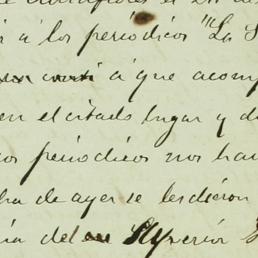 á los periódicos "La S
á que acomp
en el citado lugar y d
os periódicos nos ha
ha de ayer se les dieron
ia del Superior